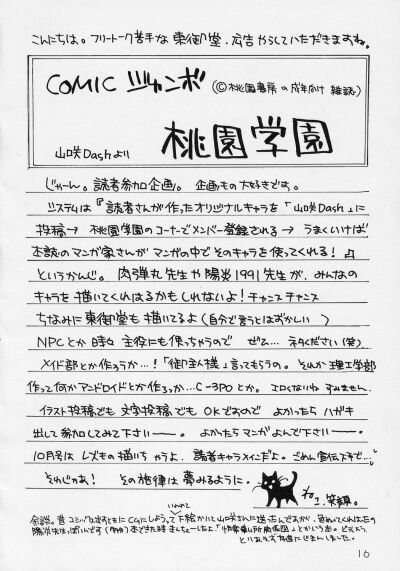 こんにちは。フリートーク苦手な 東御堂。広告やらしていただきますね。
COMIC ジャンボ (©桃園書房の成年向け雑誌)
山咲Dashより 桃園学園
じゃーん。読者参加企画。 企画もの大好きです。
システムは『読者さんが作ったオリジナルキャラを「山咲Dash」に
投稿→ 桃園学園のコーナーでメンバー登録される→ うまくいけば
本誌のマンガ家さんが マンガの中で そのキャラを使ってくれる!』
というかんじ。 肉弾丸先生や 陽炎1991先生が、みんなの
キャラを描いてくれはるかもしれないよ! チャンス チャンス
ちなみに東御堂も描いてるよ(自分で言うとはずかしい)
NPCとか時々 主役にも使っちゃうので ぜひ… ネタください(笑)
メイド部とか作ろうか…!「御主人様」言ってもらうの。それか理工学部
作って何かアンドロイドとか作ろっか…C-3POとか。エロくないね すみません。
イラスト投稿でも 文字投稿でも OKですので よかったら ハガキ
出して参加してみて下さいー。 よかったらマンガよんで下さいー。
10月号は レズもの描いちゃうよ。読者キャラメインだよ。ごめん宣伝下手で…
それじゃあ! その旋律は 夢みるように。 ねこ。笑顔。
余談。昔
16